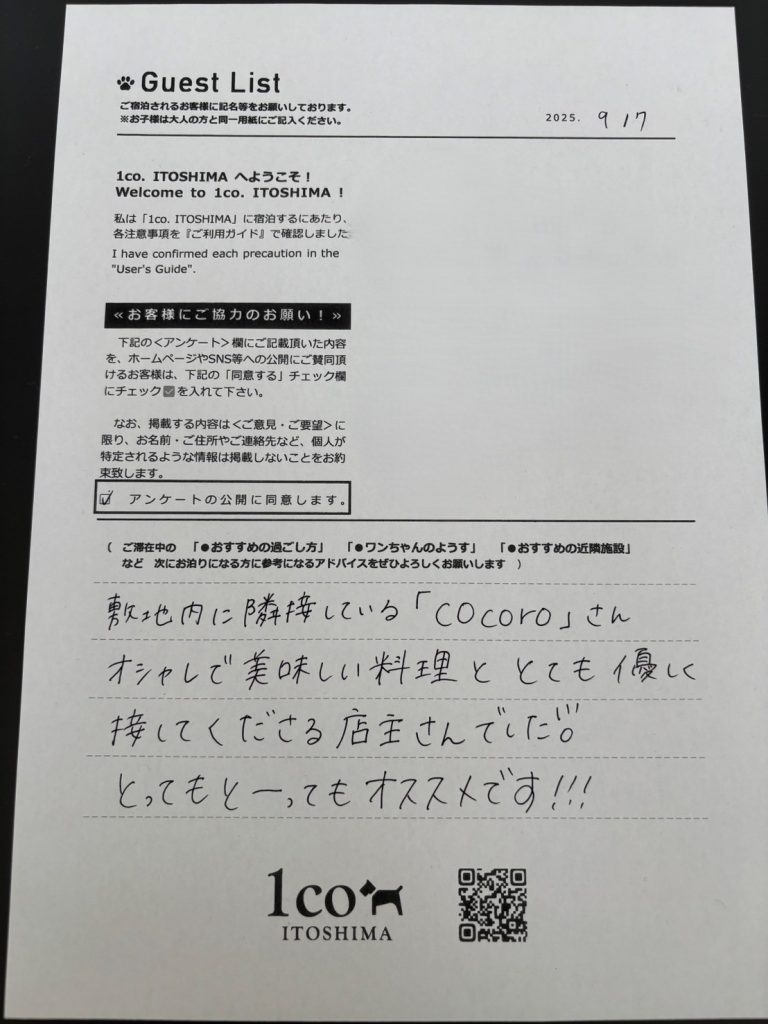 Guest List
ご宿泊されるお客様に記名等をお願いしております。
※お子様は大人の方と同一用紙にご記入ください。
2025. 9 17
1co. ITOSHIMA へようこそ！
Welcome to 1co. ITOSHIMA !
私は「1co. ITOSHIMA」に宿泊するにあたり、
各注意事項を『ご利用ガイド』で確認しました
I have confirmed each precaution in the
"User's Guide".
≪お客様にご協力のお願い！≫
下記の＜アンケート＞欄にご記載頂いた内容
を、ホームページやSNS等への公開にご賛同頂
けるお客様は、下記の「同意する」チェック欄
にチェック☑を入れて下さい。
なお、掲載する内容は＜ご意見・ご要望＞に
限り、お名前・ご住所やご連絡先など、個人が
特定されるような情報は掲載しないことをお約
束致します。
☑ アンケートの公開に同意します。
（ ご滞在中の 「●おすすめの過ごし方」 「●ワンちゃんのようす」 「●おすすめの近隣施設」
など 次にお泊りになる方に参考になるアドバイスをぜひよろしくお願いします ）
敷地内に隣接している「cocoro」さん
オシャレで美味しい料理と とても優しく
接してくださる店主さんでした。
とってもとーってもオススメです!!!
1co
ITOSHIMA